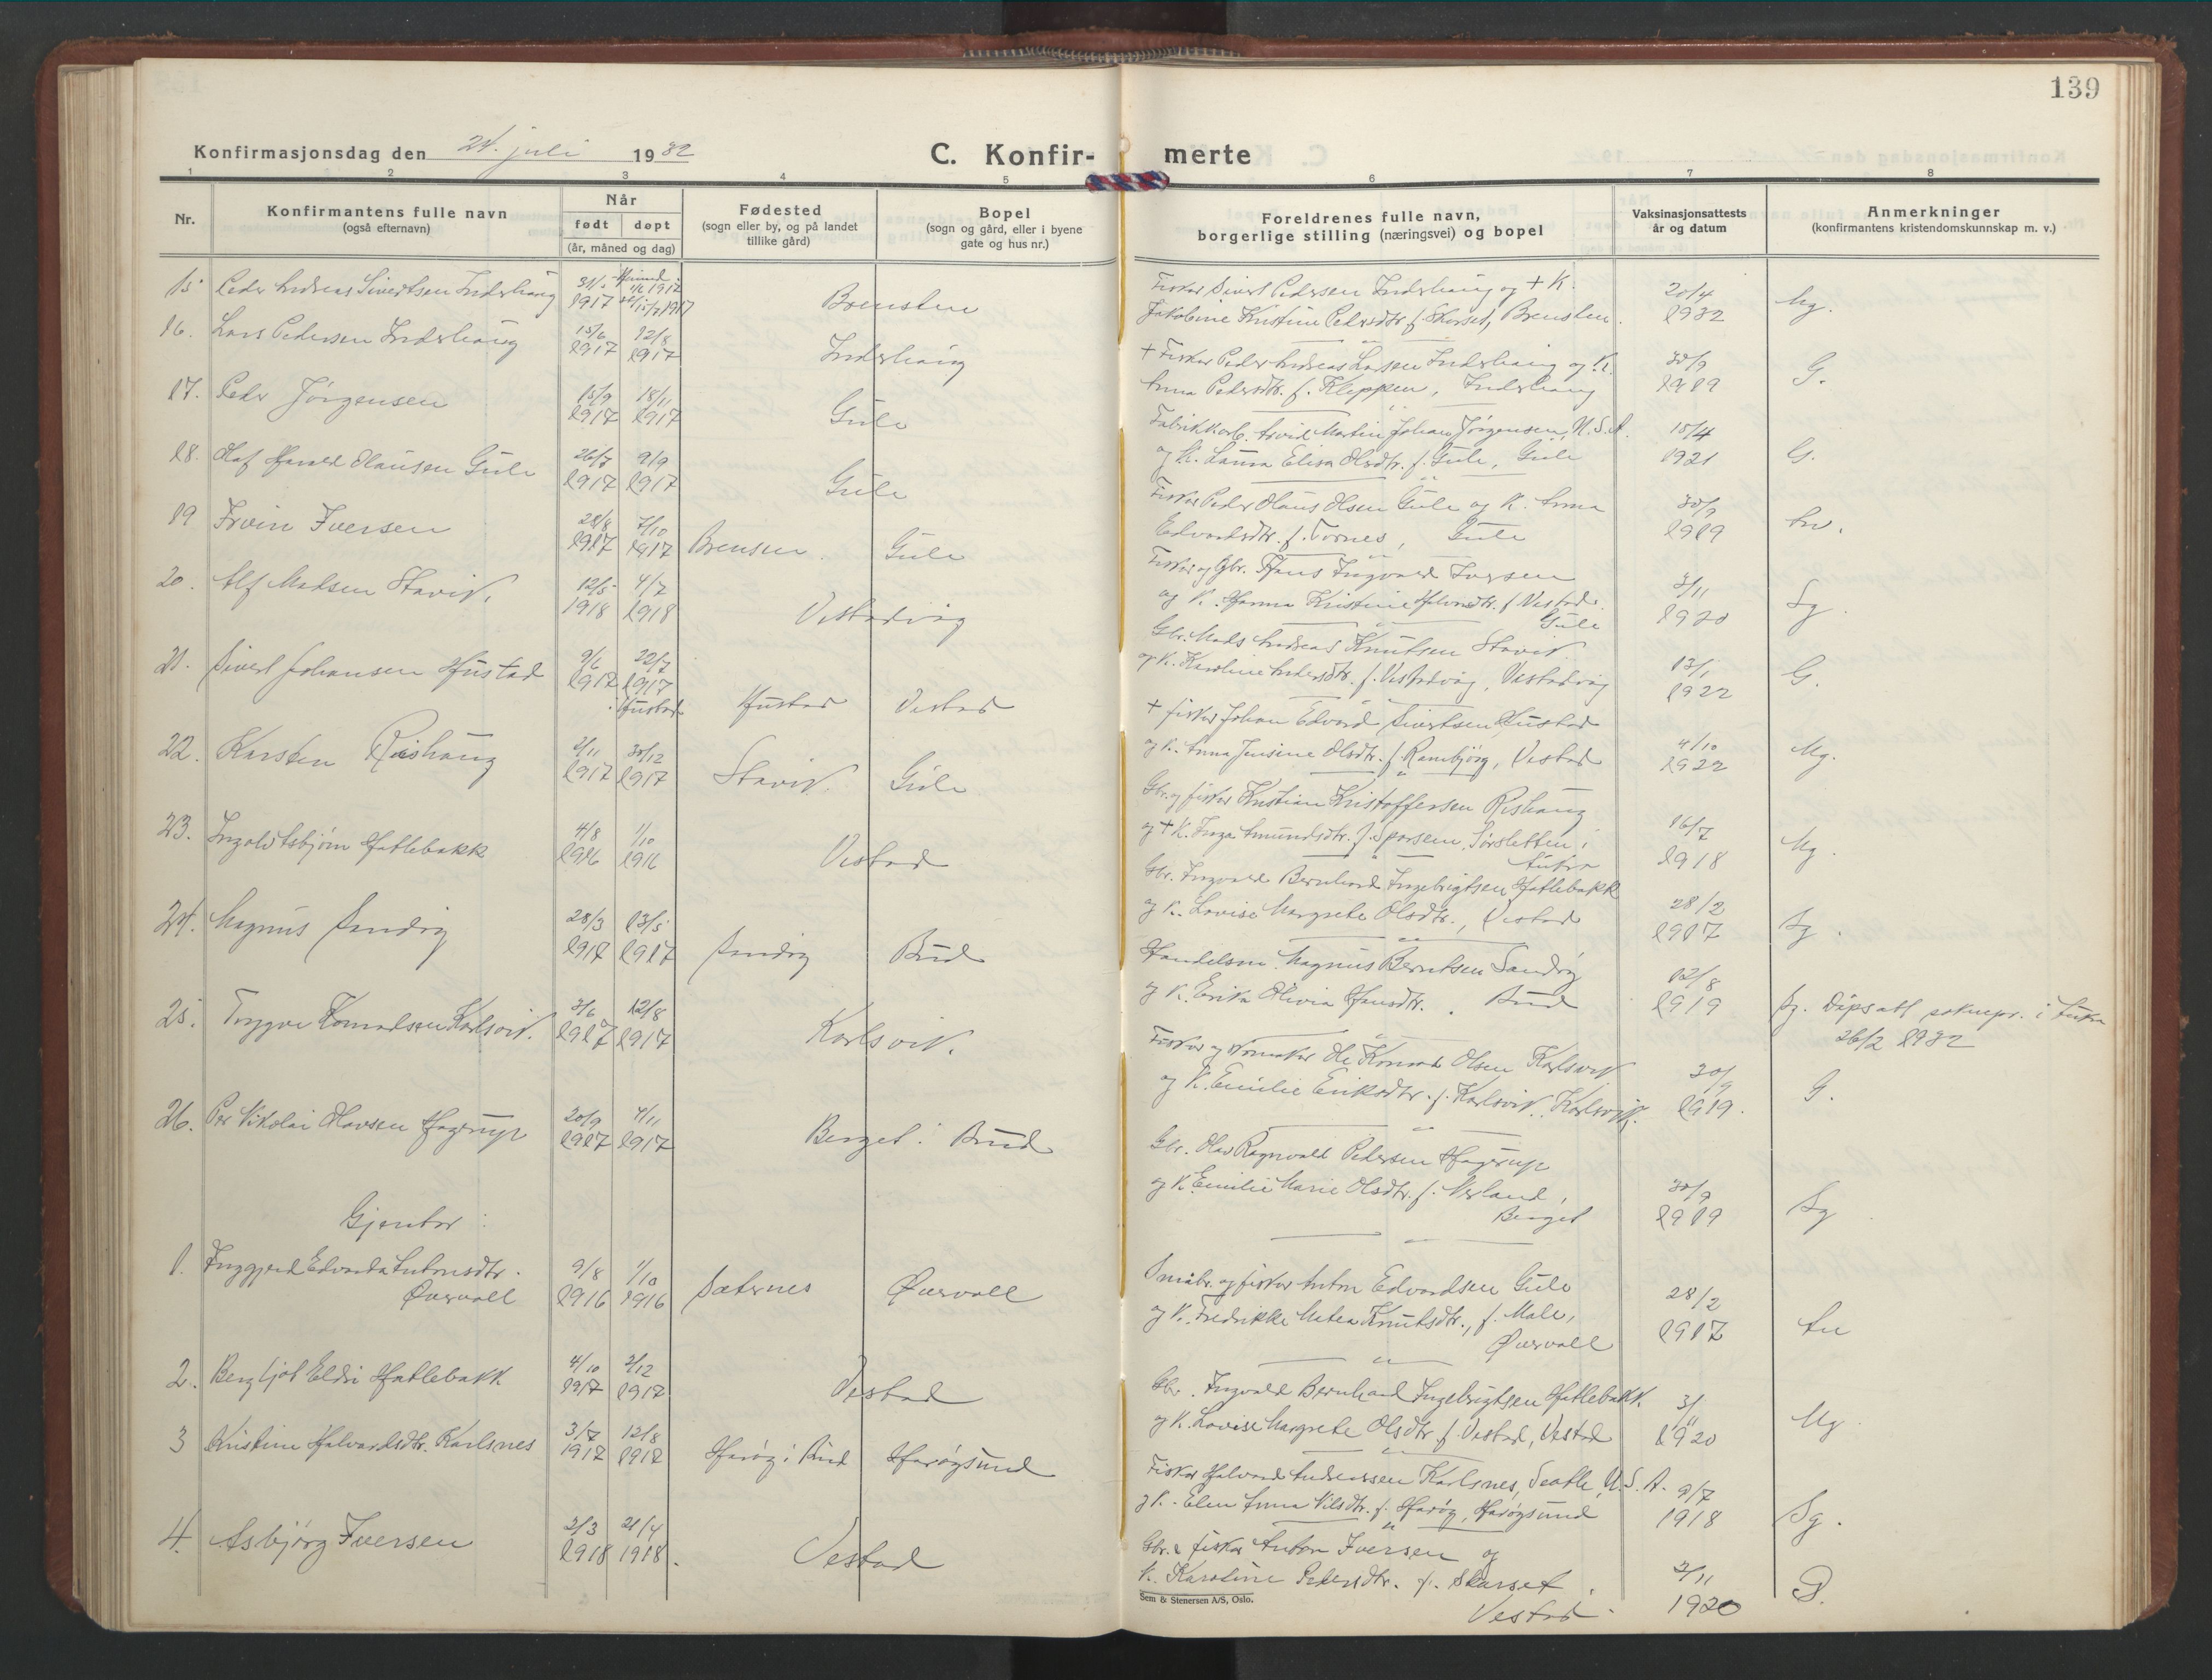 139
Konfirmasjonsdag den 24. juli 1932
C. Konfir- merte
1 2 3 4 5 6 7 8
Nr.
Konfirmantens fulle navn
(også efternavn)
Når
født døpt
(år, måned og dag)
Fødested
(sogn eller by, og på landet
tillike gård)
Bopel
(sogn og gård, eller i byene
gate og hus nr.)
Foreldrenes fulle navn,
borgerlige stilling (næringsvei) og bopel
Vaksinasjonsattests
år og datum
Anmerkninger
(konfirmantens kristendomskunnskap m. v.)
15 Peder Andreas Sivertsen Inderhaug 1917 Brensten
Fisker Sivert Pedersen Inderhaug og + K.
Jakobine Kristine Pedersdtr f. Skarset, Brensten.
20/4 1932 Mg.
16. Lars Pedersen Inderhaug 15/6 1917 12/8 1917 Inderhaug
+ Fisker Peder Andreas Larsen Inderhaug og K.
Anna Pedersdtr. f. Kleppen, Inderhaug
30/9 1919 G.
17. Peder Jørgensen 15/9 1917 18/11 1917 Gule
Fabrikkarb. Arvid Martin Johan Jørgensen, U.S.A.
og K. Laura Elisa Olsdtr. f. Gule, Gule
15/4 1921 G.
18. Olaf Harald Olausen Gule 26/7 1917 9/9 1917 Gule
Fisker Peder Olaus Olsen Gule og K. Anna
Edvardsdtr. f. Tornes, Gule
30/9 1919
19 Irvin Iversen 28/8 1917 7/10 1917 Brensten. Gule
Fisker og Gbr. Hans Ingvald Iversen
og K. Hanna Kristine Halvardtr. f. Vestad.
Gule
3/11 1920 Sg.
20. Alf Madsen Stavik. 12/5 1918 4/7 1918 Vestadvåg
Gbr. Mads Andreas Knutsen Stavik
og K. Karoline Andersdtr. f. Vestadvåg, Vestadvåg
13/1 1922 G.
21. Sivert Johansen Hustad 9/6 1917 22/7 1917 i Hustad Hustad Vestad
+ fisker Johan Edvard Sivertsen Hustad
og K. Anna Jensine Olsdtr. f. Ranvjørg, Vestad
4/10 1922 Mg.
22. Karsten Rishaug 2/11 1917 30/12 1917 Stavik. Gule
Gbr. og fisker Kristian Kristoffersen Rishaug
og + K. Inga Amundsdtr. f. Sporsem, Sørsletten i
Aukra
16/7 1918 Mg.
23. Ingolv Asbjørn Hatlebakk 4/8 1916 1/10 1916 Vestad
Gbr. Ingvald Bernhard Ingebrigtsen Hatlebakk
og K. Lovise Margrete Olsdtr., Vestad
28/2 1917 Sg.
24. Magnus Sandøy 28/3 1917 13/5 1917 Sandøy Bud
Handelsm. Magnus Berntsen Sandøy
og K. Erika Olivia Hansdtr. Bud
12/8 1919 Sg. Dåpsatt. soknepr. i Aukra
26/2 1932
25. Trygve Konradsen Karlsvik. 3/6 1917 12/8 1917 Karlsvik.
Fisker og skomaker Ole Konrad Olsen Karlsvik
og K. Emilie Eriksdtr. f. Karlsvik. Karlsvik.
30/9 1919. G.
26. Per Nikolai Olavsen Hagerup 20/9 1917 4/11 1917 Berget i Bud
Gbr. Olav Ragnvald Pedersen Hagerup
og K. Emilie Marie Olsdtr. f. Nerland,
Berget
30/9 1919 Sg
Gjentor:
1. Inggjerd Edvarda Antonsdtr.
Øvervoll 9/8 1916 1/10 1916 Sæternes Øvervoll
Småbr. og fisker Anton Edvardsen Gule
og K. Fredrikke Matea Knutsdtr., f. Male,
Øvervoll
28/2 1917
2. Bergljot Eldri Hatlebakk 4/10 1917 2/12 1917 Vestad
Gbr. Ingvald Bernhard Ingebrigtsen Hatlebakk.
og K. Lovise Margrete Olsdtr. f. Vestad, Vestad
3/11 1920 Mg
3 Kristine Halvardsdtr. Karlsnes 3/7 1917 12/8 1917 Harøy i Bud Harøysund
Fisker Halvard Andreassen Karlsnes, Seatle, U.S.A.
og K. Elen Anna Nilsdtr. f. Harøy, Harøysund
9/7 1918 Sg.
4. Asbjørg Iversen 2/3 1918 21/4 1918. Vestad
Gbr. & fisker Anton Iversen og
K. Karoline Pedersdtr. f. Skarset.
Vestad.
2/11 1920 G.
Sem & Stenersen A/S, Oslo.